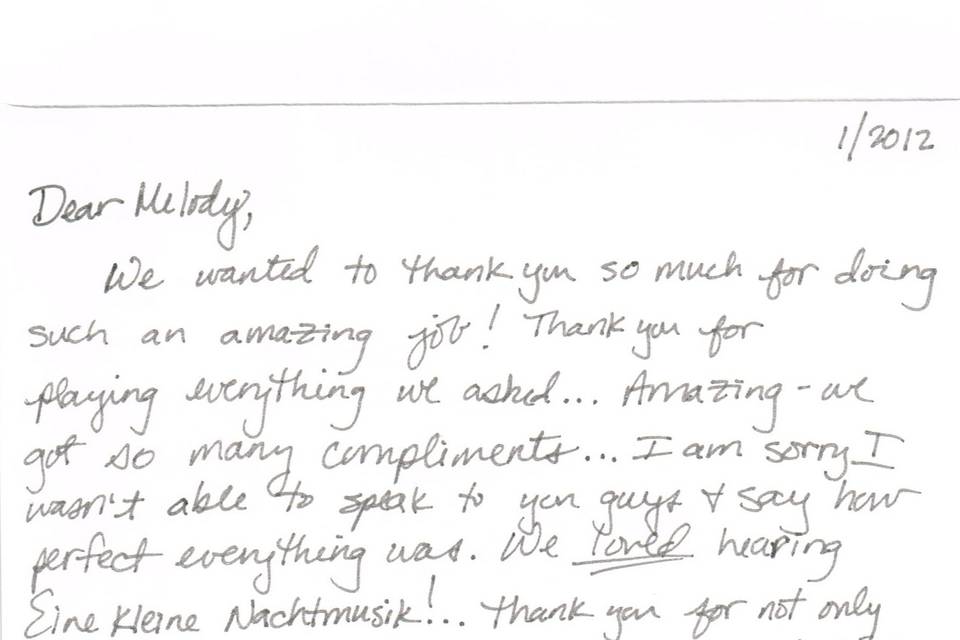 1/2012
Dear Melody,
We wanted to thank you so much for doing
such an amazing job! Thank you for
playing everything we asked... Amazing - we
got so many compliments... I am sorry I
wasn't able to speak to you guys & say how
perfect everything was. We loved hearing
Eine Kleine Nachtmusik!... Thank you for not only